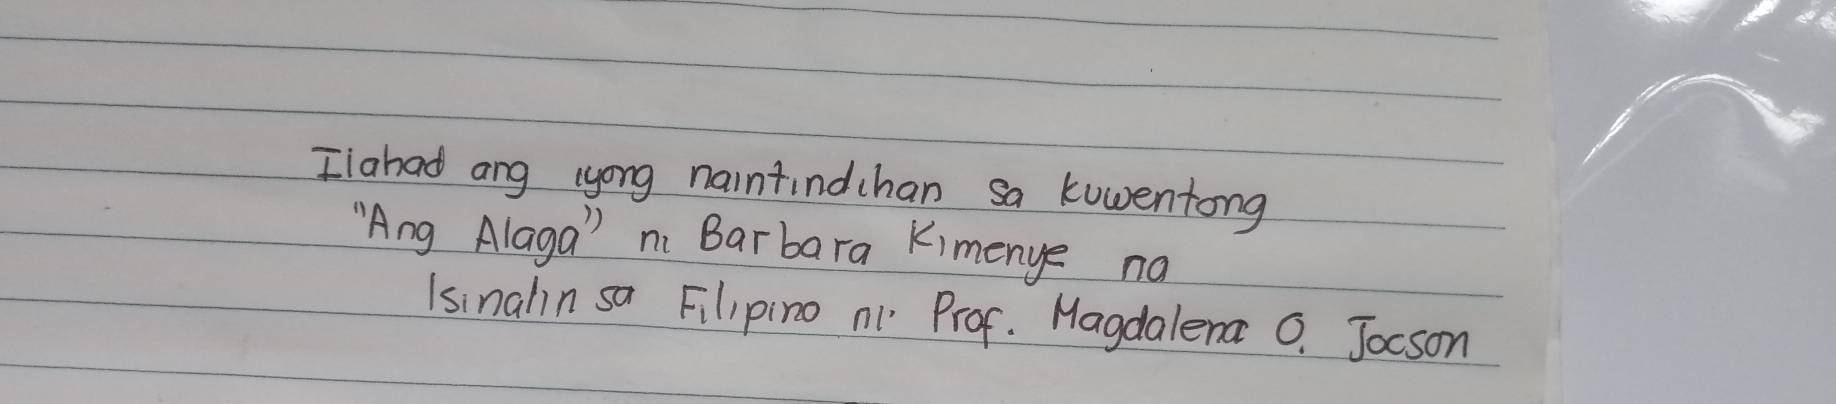 Ilahad ang iyong naintindihan sa kuwentong
"Ang Alaga" ni Barbara Kimenye na
Isinalin sa Filipino ni Prof. Magdalena O. Jocson